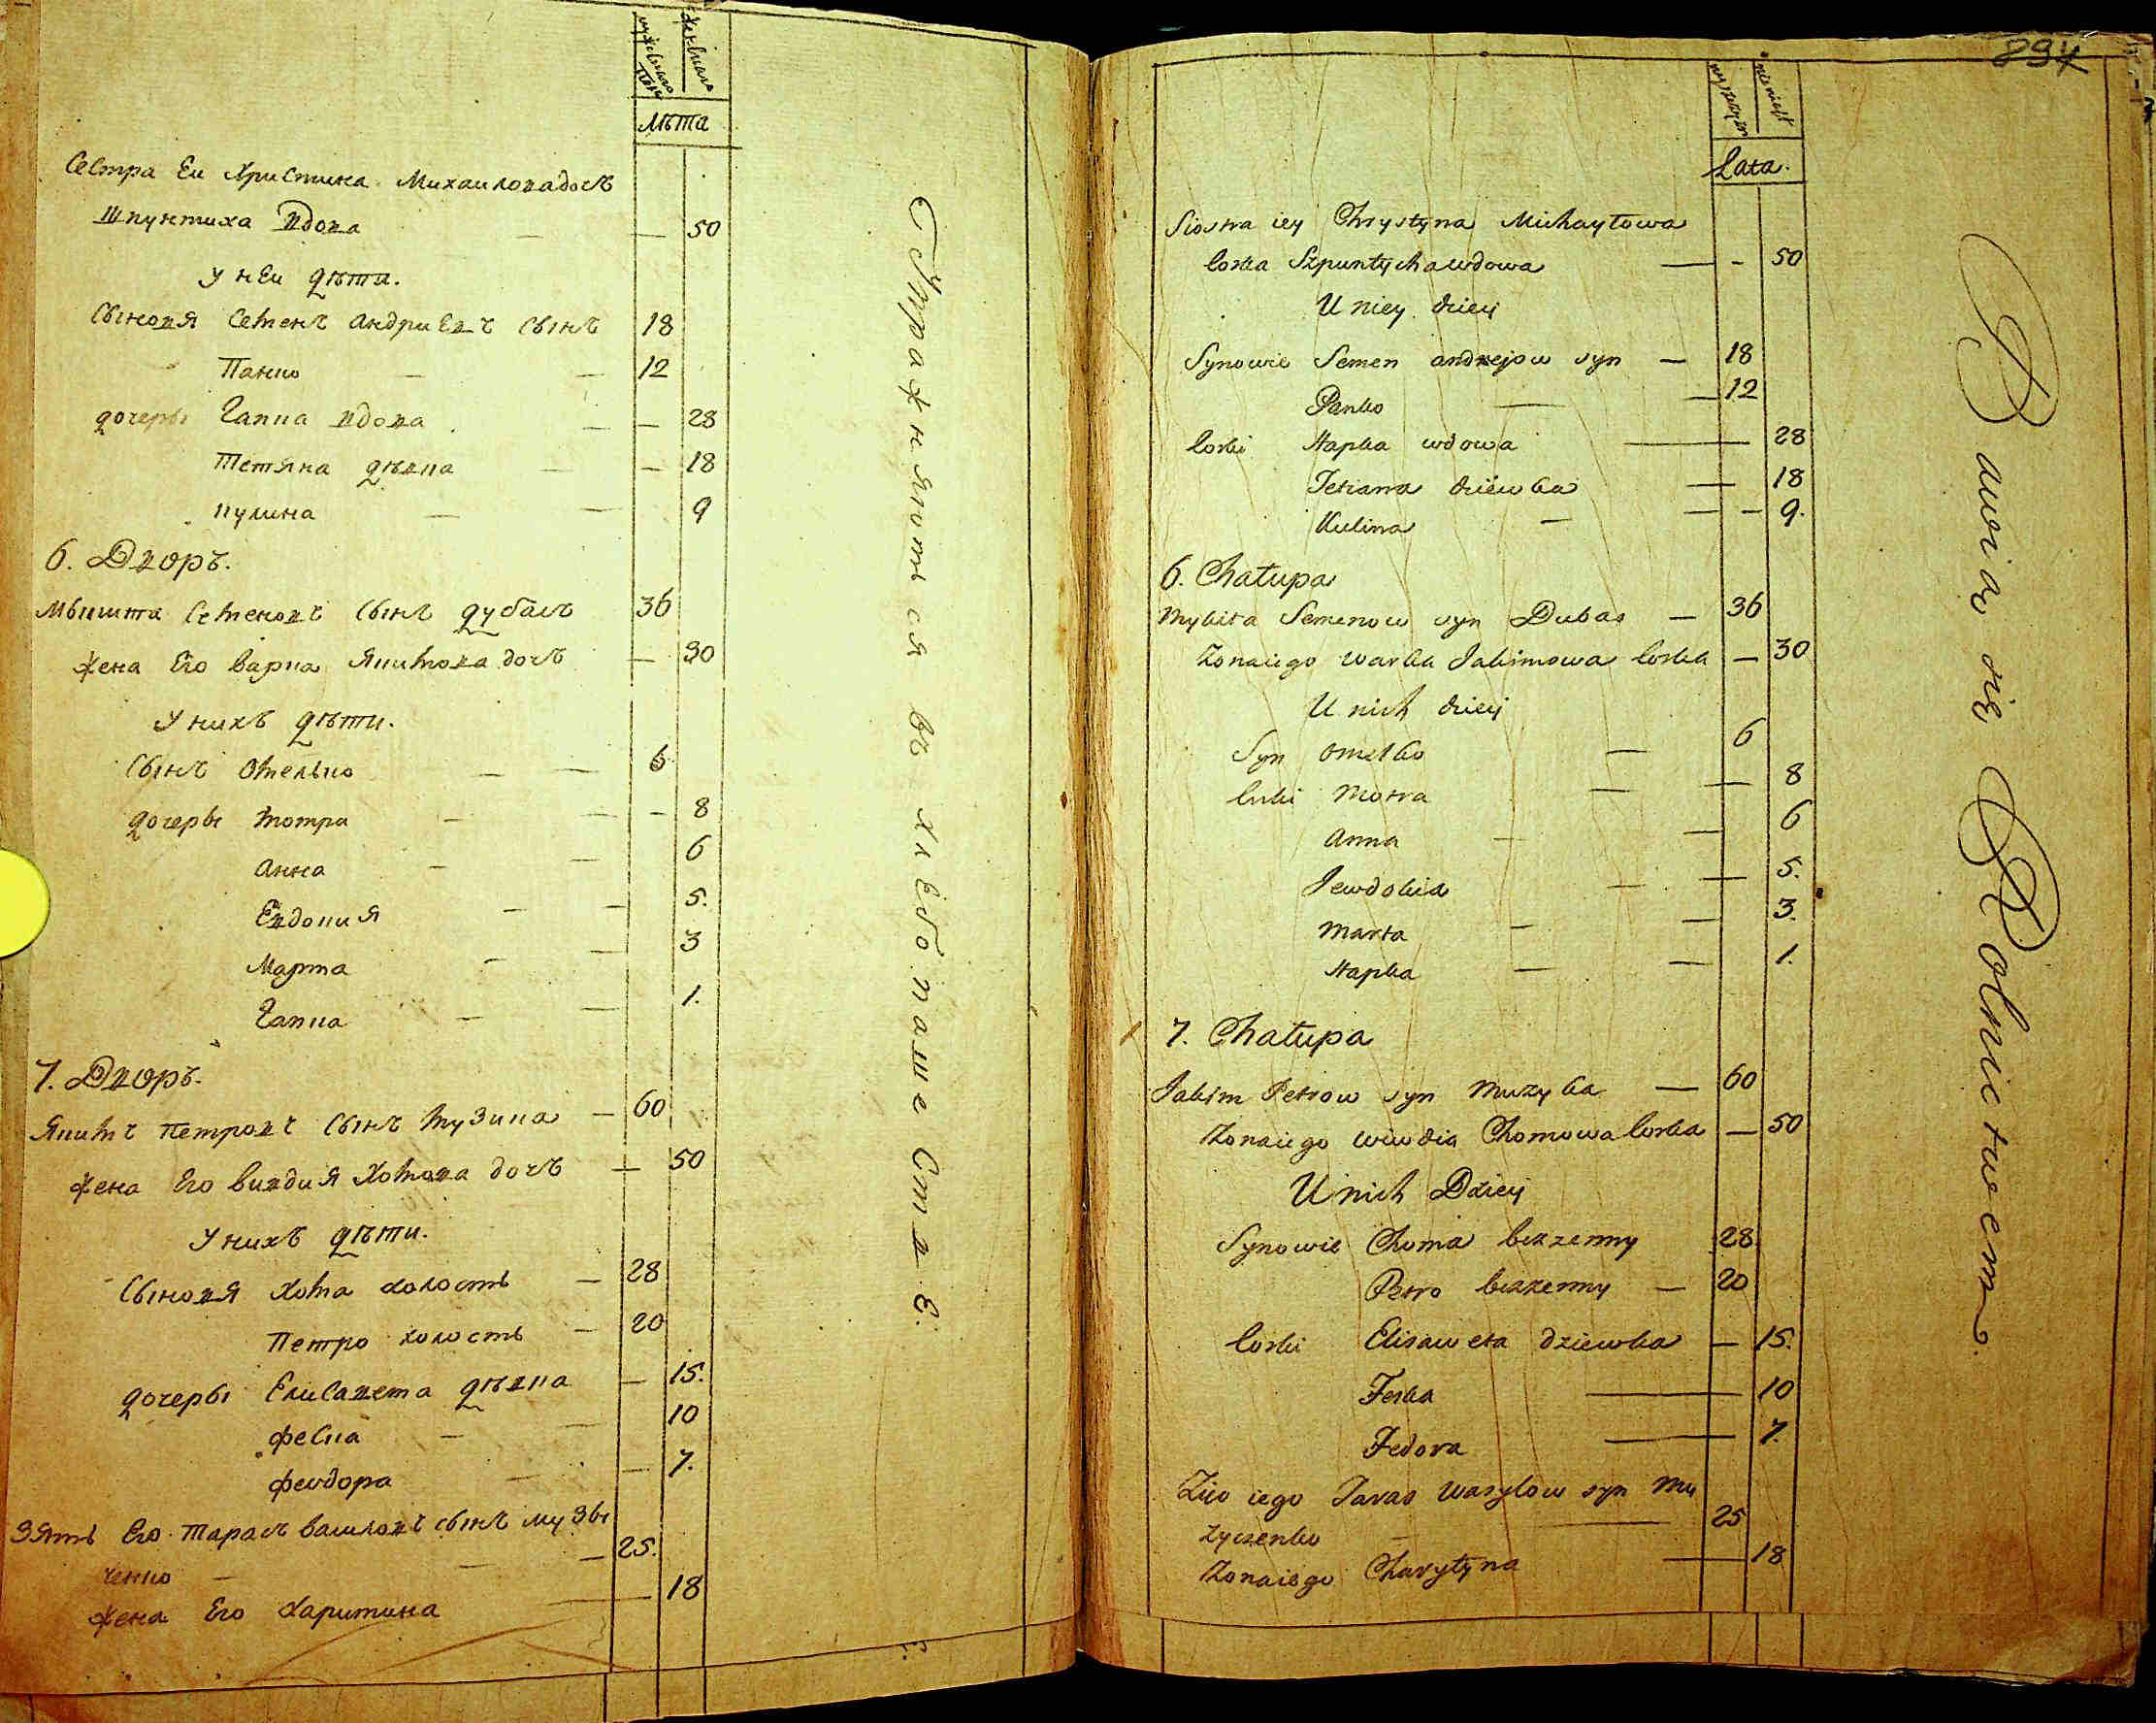 мужескаго полу
женскаго
лѣта
Сестра Еи Христина Михаиловадочъ
Шпунтиха вдова — — 50
у неи дѣти.
Сыновя Семенъ андриевъ сынъ 18
Панко — — 12
дочеры Гапка вдова — — 28
Тетяна дѣвка — — 18
кулина — — 9
6. Дворъ.
Мыкита Семеновъ сынъ дубасъ 36
жена Его варка Якимова дочъ — 30
у нихъ дѣти.
Сынъ Омелько — — 6
дочеры мотра — — - 8
анна — — 6
Евдокия — — 5.
Марта — — 3
Гапка — — 1.
7. Дворъ.
Якимъ петровъ сынъ музика — 60
жена Его вивдия Хомова дочъ — 50
у нихъ дѣти.
Сыновя хома холостъ — 28
петро холостъ — 20
дочеры Елисавета дѣвка — 15.
феска — — 10
феодора — — 7.
зять Его тарасъ василовъ сынъ музы
ченко — — — 25.
жена Его харитина — 18
Упражняютъся въ хлебопашеСтвЕ.
894
mężczyzn
niewiast
Lata.
Siostra iey Chrystyna Michayłowa
corka Szpuntychawdowa — - 50
U niey dzieci
Synowie Semen andrzejow syn — 18
Panko — — 12
Corki Hapka wdowa — 28
Tetiana dziewka — 18
Kulina — — - 9.
6. Chałupa
Mykita Semenow syn Dubas — 36
Zonaiego warka Jakimowa Corka — 30
U nich dzieci
Syn omelko — 6
Corki Motra — — 8
anna — — 6
Jewdokia — — 5.
Marta — — 3.
Hapka — — 1.
7. Chałupa
Jakim Petrow syn Muzyka — 60
Zonaiego wiwdia Chomowa Corka — 50
U nich Dzieci
Synowie Choma bezzenny 28
Petro bezzenny — 20
Corki Elisaweta dziewka — 15.
Feska — 10
Fedora — 7.
Zięc iego Taras Wasylow syn Mu
zyczenko — — 25
Zonaiego Charytyna — 18
Bawią się Rolnictwem.